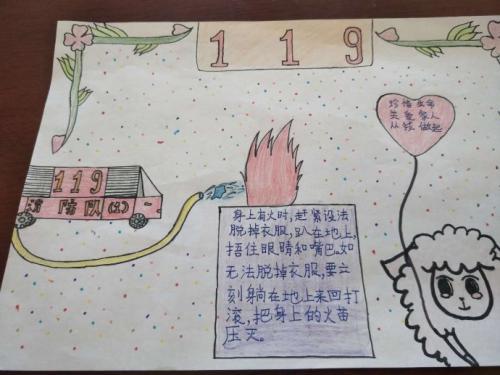 119
珍惜生命
关爱家人
从我做起
119
消防队(车)
身上有火时,赶紧设法
脱掉衣服,趴在地上,
捂住眼睛和嘴巴。如
无法脱掉衣服,要立
刻躺在地上来回打
滚,把身上的火苗
压灭。